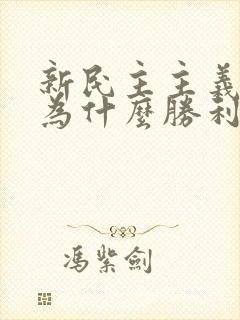 新民主主義
為什麼勝利
馮紫劍